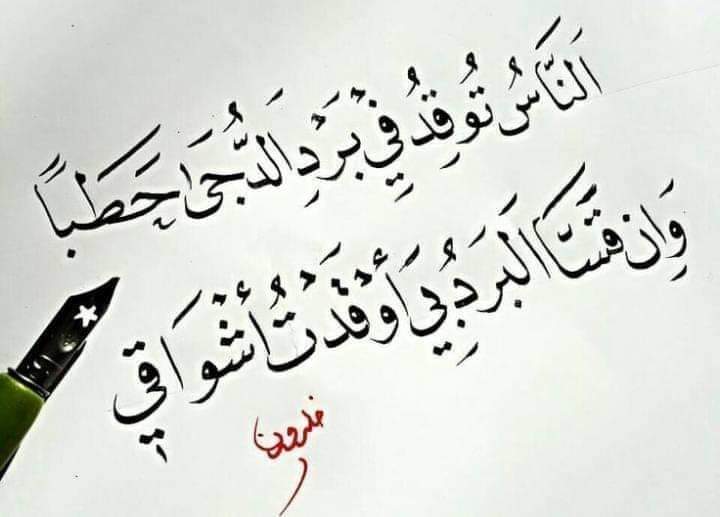 اَلنَّاسُ تُوقِدُ فِيْ بَرْدِ الدُّجَىٰ حَطَبًا
وَإِن قَسَىٰ البَردُ بِي أَوْقَدْتُ أَشْوَاقِي
خلدون